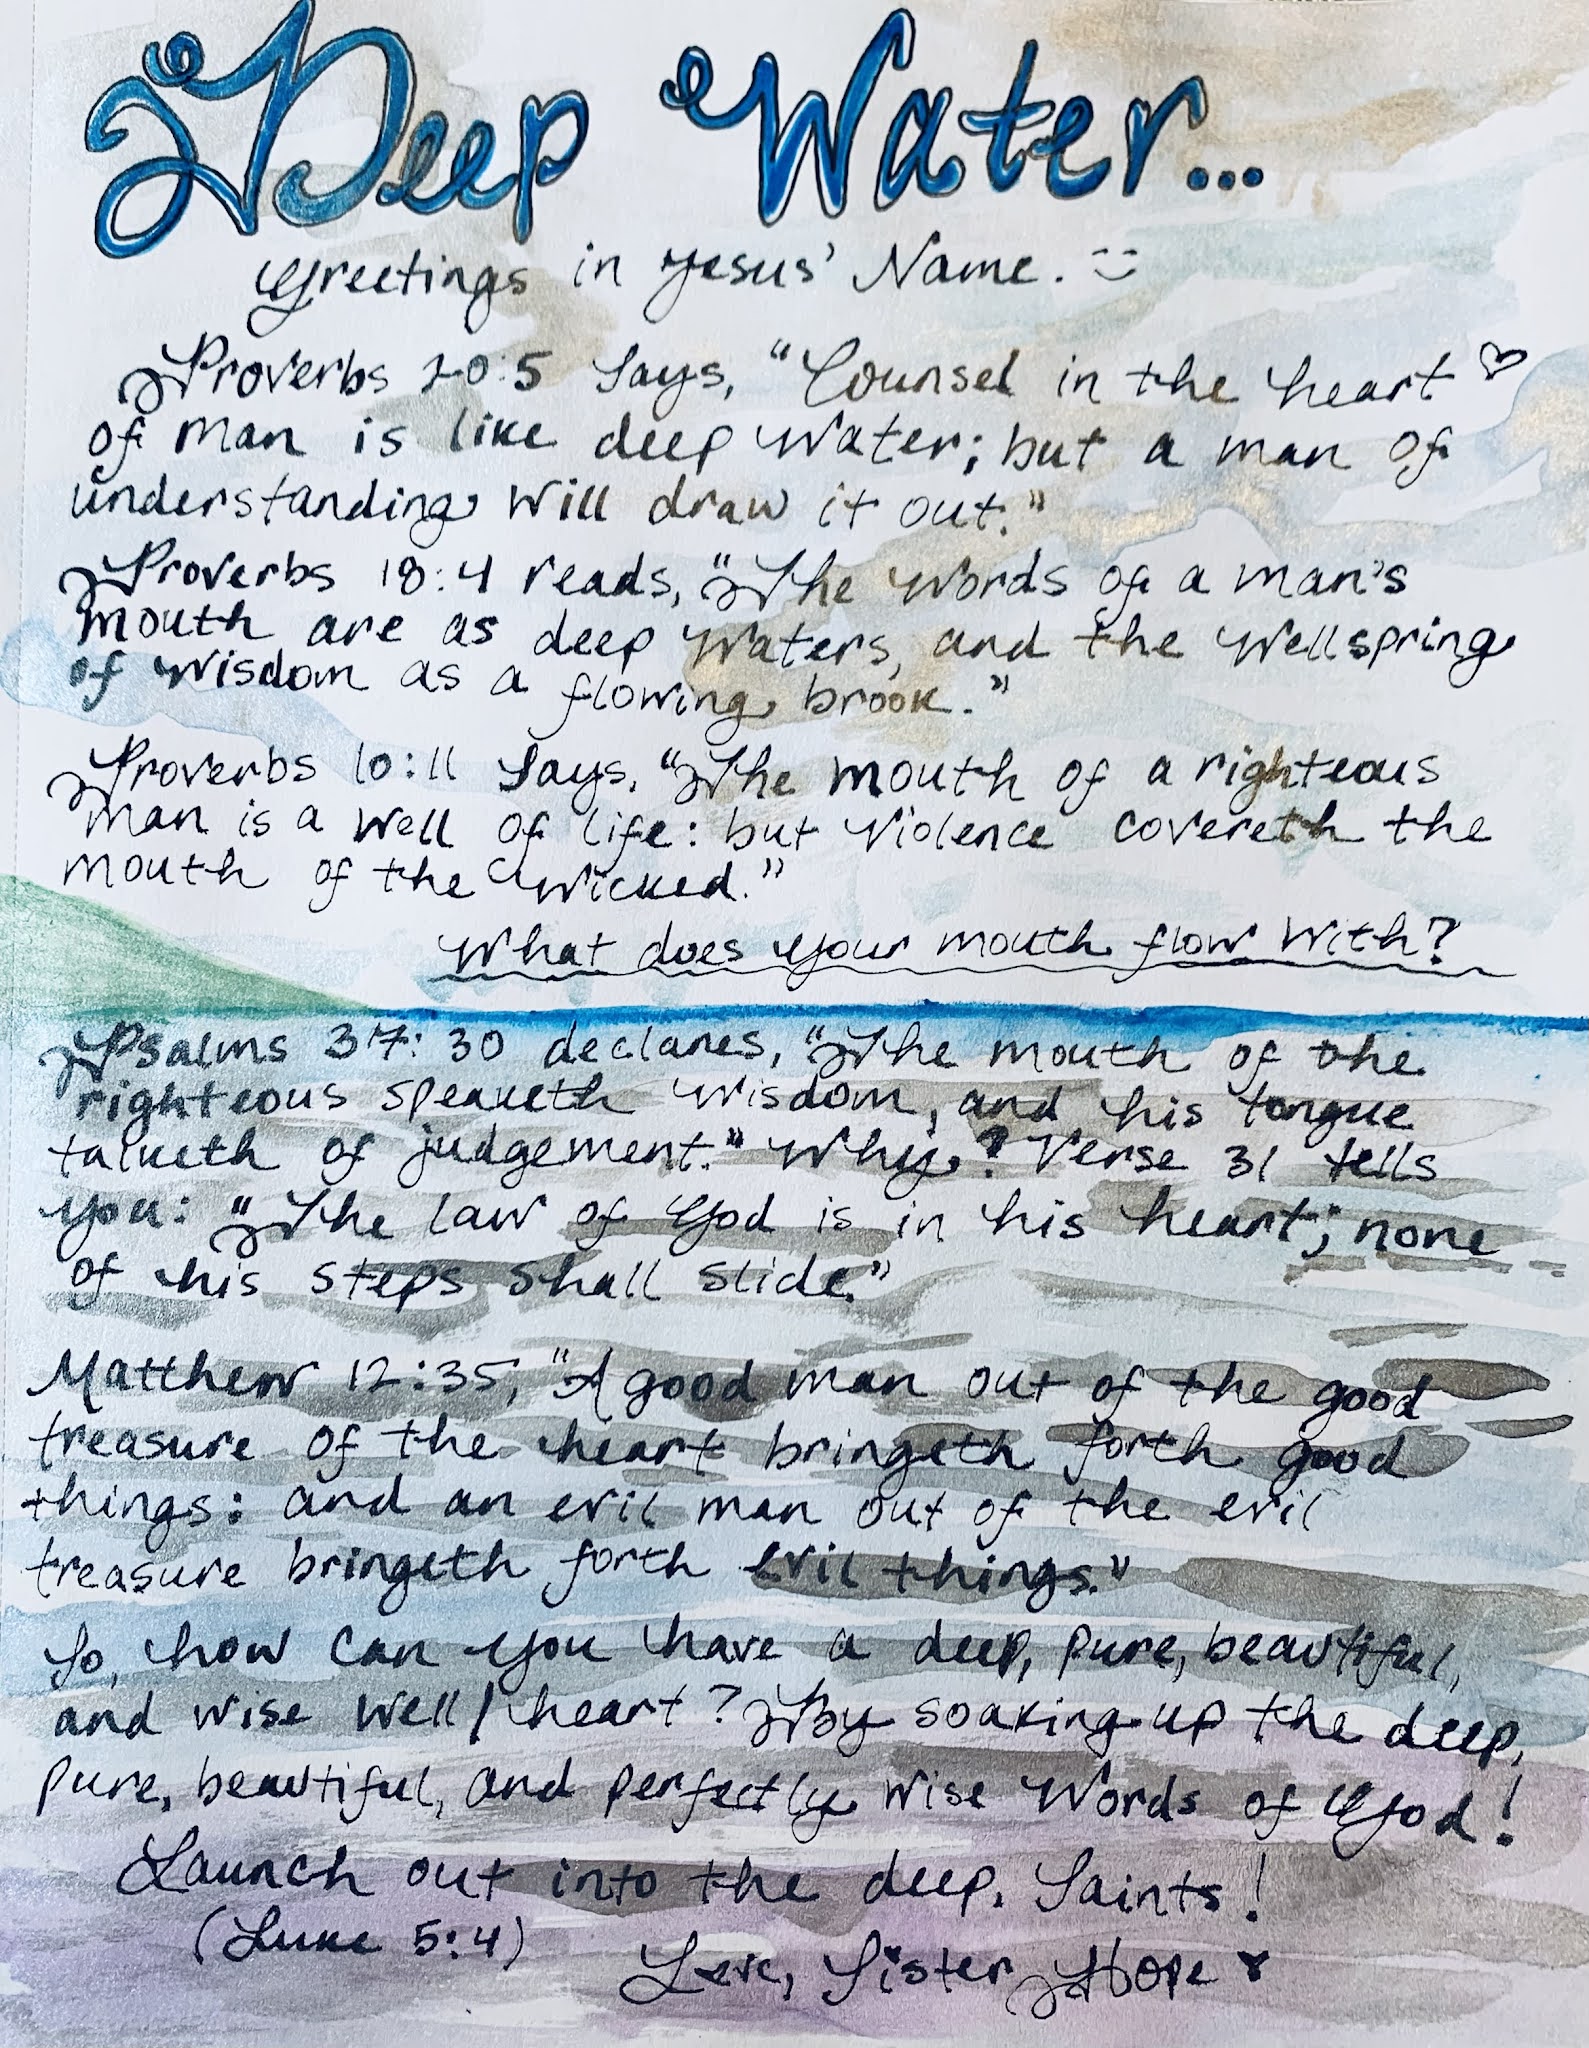 Deep Water...
Greetings in Jesus' Name. :)
Proverbs 20:5 says, "Counsel in the heart ♡
of man is like deep water; but a man of
understanding will draw it out."
Proverbs 18:4 reads, "The words of a man's
mouth are as deep waters, and the wellspring
of wisdom as a flowing brook."
Proverbs 10:11 says, "The mouth of a righteous
man is a well of life: but violence covereth the
mouth of the wicked."
What does your mouth flow with?
Psalms 37:30 declares, "The mouth of the
righteous speaketh wisdom, and his tongue
talketh of judgement." Why? Verse 31 tells
you: "The law of God is in his heart; none
of his steps shall slide."
Matthew 12:35, "A good man out of the good
treasure of the heart bringeth forth good
things: and an evil man out of the evil
treasure bringeth forth evil things."
So, how can you have a deep, pure, beautiful,
and wise well/heart? By soaking up the deep,
pure, beautiful, and perfectly wise Words of God!
Launch out into the deep, Saints!
(Luke 5:4)
Love, Sister Hope ♥